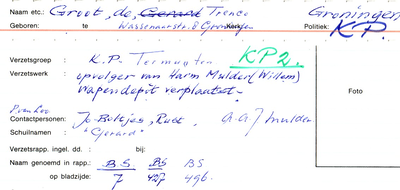 Naam etc.: Groot, de, Gerard Trenco Groningen
Geboren: te Wassenaarstr. 8 Groningen Kerk: Politiek: KP.
Verzetsgroep : K.P. Termunten KP2.
Verzetswerk : opvolger van Harm Mulder (Willem)
wapendepôt verplaatst.
Foto
Contactpersonen: Jo Boltjes, Ruet, a-a J Mulder
Schuilnaam : "Gerard"
Verzetsrapp. ingel. dd. : bij:
Naam genoemd in rapp.: B.S. BS BS
op bladzijde: 7 427 496.